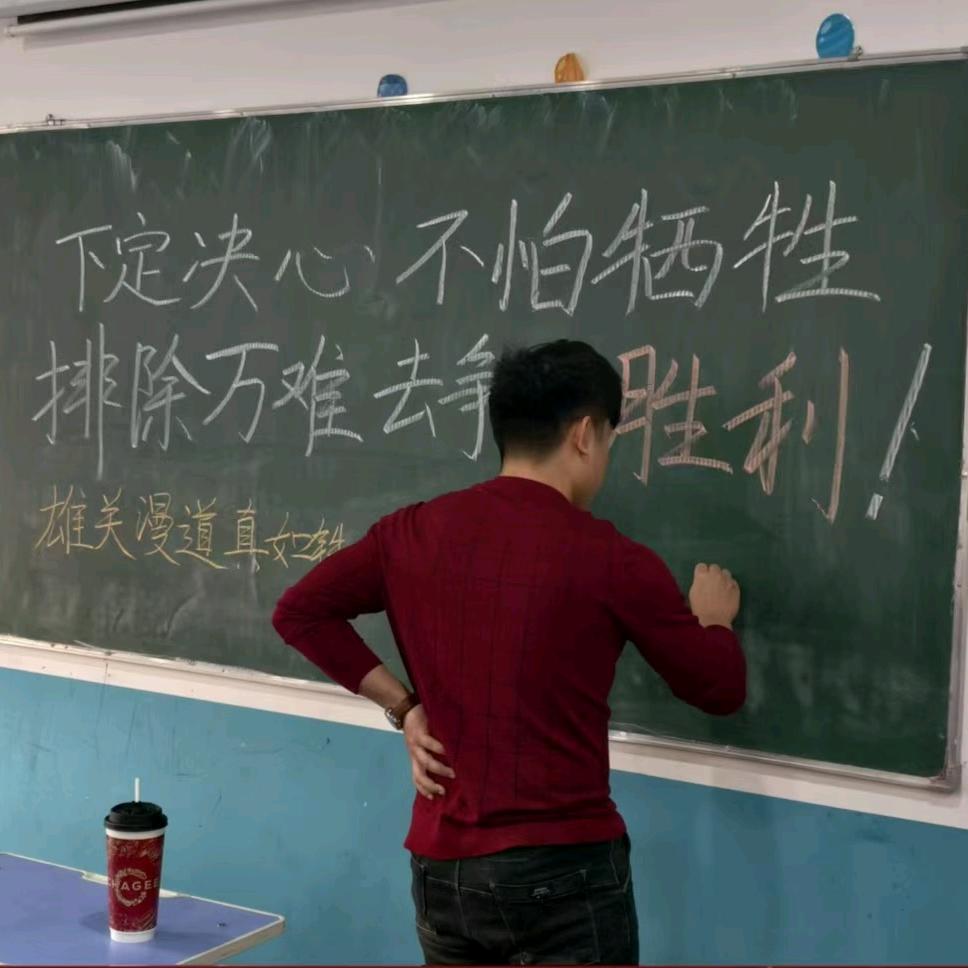 下定决心 不怕牺牲
排除万难 去争 胜利！
雄关漫道真如铁
HAGEE